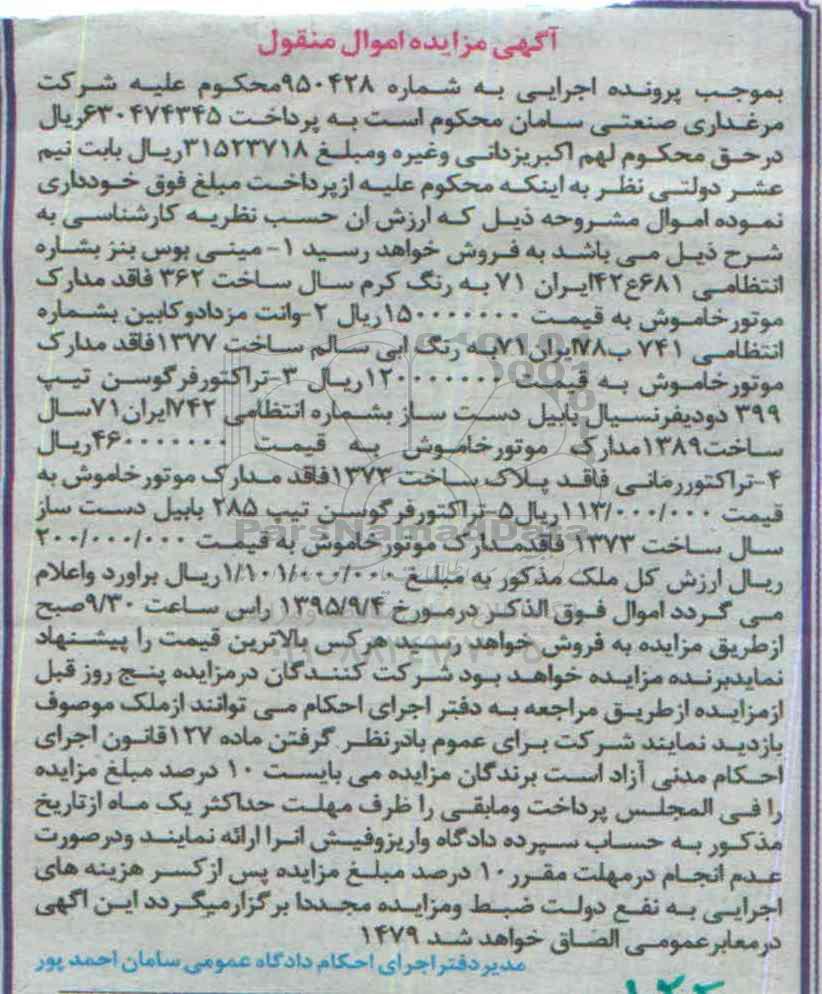 آگهی مزایده اموال منقول
بموجب پرونده اجرایی به شماره ۹۵۰۴۲۸محکوم علیه شرکت
مرغداری صنعتی سامان محکوم است به پرداخت ۶۳۰۴۷۴۳۴۵ریال
درحق محکوم لهم اکبریزدانی وغیره ومبلغ ۳۱۵۲۳۷۱۸ریال بابت نیم
عشر دولتی نظر به اینکه محکوم علیه ازپرداخت مبلغ فوق خودداری
نموده اموال مشروحه ذیل که ارزش ان حسب نظریه کارشناسی به
شرح ذیل می باشد به فروش خواهد رسید ۱- مینی بوس بنز بشاره
انتظامی ۶۸۱ع۴۲ایران ۷۱ به رنگ کرم سال ساخت ۳۶۲ فاقد مدارک
موتورخاموش به قیمت ۱۵۰۰۰۰۰۰۰ریال ۲-وانت مزدادوکابین بشماره
انتظامی ۷۴۱ ب۷۸ایران۷۱به رنگ ابی سالم ساخت ۱۳۷۷فاقد مدارک
موتورخاموش به قیمت ۱۲۰۰۰۰۰۰۰ریال ۳-تراکتورفرگوسن تیپ
۳۹۹ دودیفرنسیال بابیل دست ساز بشماره انتظامی ۷۴۲ایران۷۱سال
ساخت۱۳۸۹مدارک موتورخاموش به قیمت ۴۶۰۰۰۰۰۰۰ریال
۴-تراکتوررمانی فاقد پلاک ساخت ۱۳۷۳فاقد مدارک موتورخاموش به
قیمت ۱۱۳/۰۰۰/۰۰۰ریال۵-تراکتورفرگوسن تیپ ۲۸۵ بابیل دست ساز
سال ساخت ۱۳۷۳ فاقدمدارک موتورخاموش به قیمت ۲۰۰/۰۰۰/۰۰۰
ریال ارزش کل ملک مذکور به مبلغ ۱/۱۰۱/۰۰۰/۰۰۰ریال براورد واعلام
می گردد اموال فوق الذکر درمورخ ۱۳۹۵/۹/۴ راس ساعت ۹/۳۰صبح
ازطریق مزایده به فروش خواهد رسید هرکس بالاترین قیمت را پیشنهاد
نمایدبرنده مزایده خواهد بود شرکت کنندگان درمزایده پنج روز قبل
ازمزایده ازطریق مراجعه به دفتر اجرای احکام می توانند ازملک موصوف
بازدید نمایند شرکت برای عموم بادرنظر گرفتن ماده ۱۲۷قانون اجرای
احکام مدنی آزاد است برندگان مزایده می بایست ۱۰ درصد مبلغ مزایده
را فی المجلس پرداخت ومابقی را ظرف مهلت حداکثر یک ماه ازتاریخ
مذکور به حساب سپرده دادگاه واریزوفیش انرا ارائه نمایند ودرصورت
عدم انجام درمهلت مقرر۱۰ درصد مبلغ مزایده پس ازکسر هزینه های
اجرایی به نفع دولت ضبط ومزایده مجددا برگزارمیگردد این اگهی
درمعابرعمومی الصاق خواهد شد ۱۴۷۹
مدیردفتراجرای احکام دادگاه عمومی سامان احمد پور
ParsNamadData